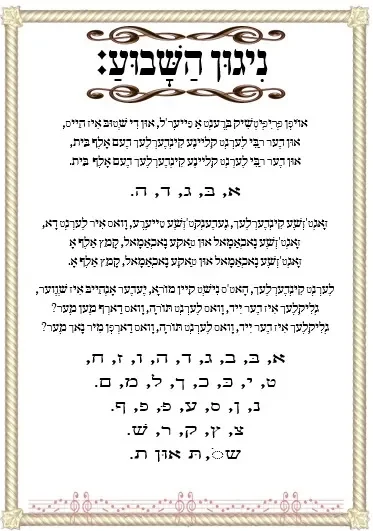 ניגון השבוע:
אויפן פריפיטשיק ברענט א פייער'ל, און די שטוב איז הייס,
און דער רבי לערנט קליינע קינדערלעך דעם אלף בית,
און דער רבי לערנט קליינע קינדערלעך דעם אלף בית.
א, בּ, ג, ד, ה.
זאגט'זשע קינדערלעך, געדענקט'זשע טייערע, וואס איר לערנט דא,
זאגט'זשע נאכאמאל און טאקע נאכאמאל, קמץ אלף אָ.
זאגט'זשע נאכאמאל און טאקע נאכאמאל, קמץ אלף אָ.
לערנט קינדערלעך, האט'ס נישט קיין מורא, יעדער אנהייב איז שווער,
גליקלעך איז דער ייד, וואס לערנט תורה, וואס דארף מען מער?
גליקלעך איז דער ייד, וואס לערנט תורה, וואס דארפן מיר נאך מער?
א, בּ, ב, ג, ד, ה, ו, ז, ח,
ט, י, כּ, כ, ך, ל, מ, ם.
נ, ן, ס, ע, פּ, פ, ף.
צ, ץ, ק, ר, שׁ.
שׂ, תּ און ת.